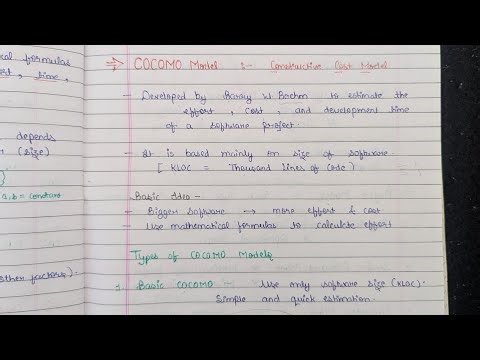 cal formulas
time,
depends
(size)
a, b = constant
other factors).
⇒ COCOMO Model :- Constructive Cost Model
- Developed by Barry W. Boehm to estimate the
effort, cost, and development time
of a software project.
- It is based mainly on size of software.
[ KLOC = Thousand lines of code ]
Basic Idea -
- Bigger software → more effort & cost
- Use mathematical formulas to calculate effort
Types of COCOMO Models
1. Basic COCOMO :- Use only software size (KLOC).
Simple and quick estimation.